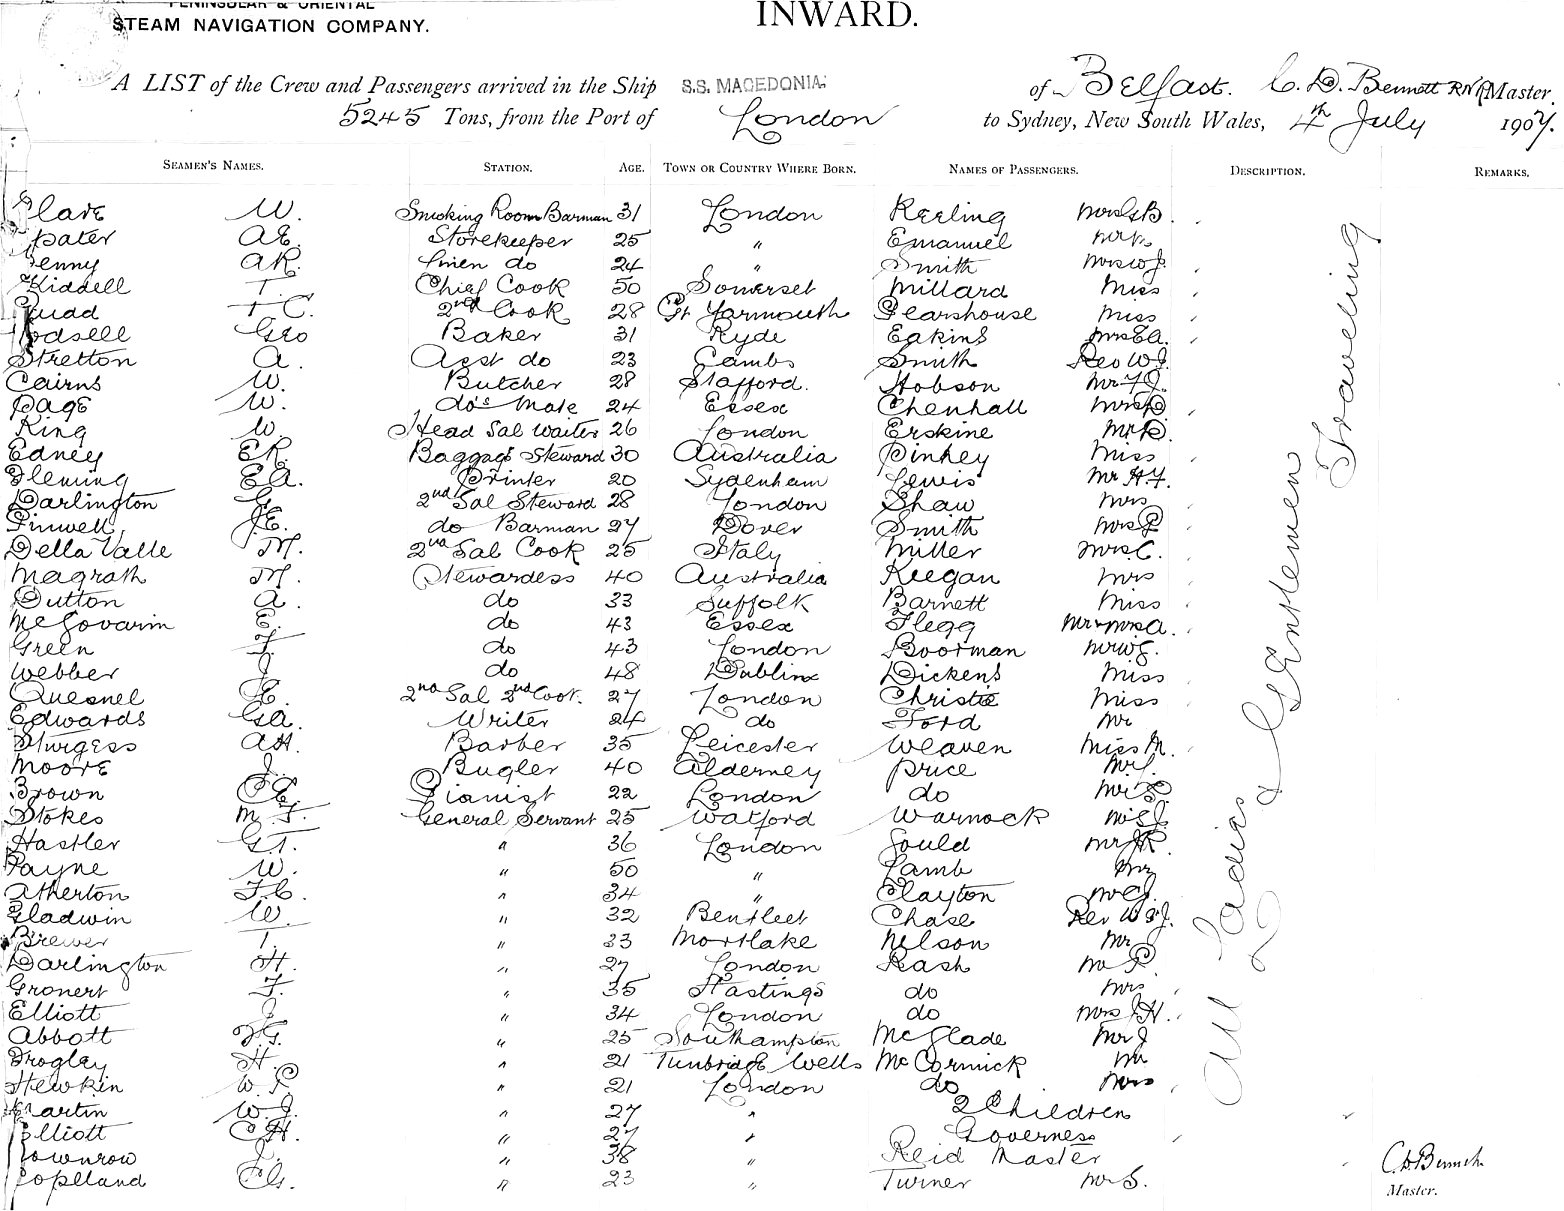 PENINSULAR & ORIENTAL
STEAM NAVIGATION COMPANY.
INWARD.
A LIST of the Crew and Passengers arrived in the Ship S.S. MACEDONIA. of Belfast. C. D. Bennett RNR Master,
5245 Tons, from the Port of London to Sydney, New South Wales, 4th July 1907.
SEAMEN'S NAMES. STATION. AGE. TOWN OR COUNTRY WHERE BORN. NAMES OF PASSENGERS. DESCRIPTION. REMARKS.
W. Smoking Room Barman 31 London Keeling Mrs
AE. Storekeeper 25 " Emanuel Mr
AR. Linen do 24 " Smith Mrs W J.
Kiddell T. Chief Cook 50 Somerset Millard Miss
T C. 2nd Cook 28 Gt Yarmouth Pearshouse Miss
Geo Baker 31 Ryde Eakins Mrs EA.
Stretton A. Asst do 23 Cambs Smith Rev W J.
Cairns W. Butcher 28 Stafford. Hobson Mr F J.
Page W. do's Mate 24 Essex Chenhall Mrs
King W. Head Sal Waiter 26 London Erskine Mr
Edney ER. Baggage Steward 30 Australia Pinkey Miss
Fleming EA. Printer 20 Sydenham Lewis Mr H F.
Darlington G. 2nd Sal Steward 28 London Shaw Mrs
Pinwell J.E. do Barman 27 Dover Smith Mrs
Della Valle M. 2nd Sal Cook 25 Italy Miller Mrs C.
Magrath M. Stewardess 40 Australia Keegan Mrs
Dutton A. do 33 Suffolk Barnett Miss
McGovarin E. do 43 Essex Flegg Mr & Mrs A.
Green F. do 43 London Boorman Mr W G.
Webber J. do 48 Dublin Dickens Miss
Quesnel E. 2nd Sal 2nd Cook. 27 London Christie Miss
Edwards GA. Writer 24 do Ford Mr
Sturgess AH. Barber 35 Leicester Weaven Miss M.
Moore J. Bugler 40 Alderney Price Mr
Brown Pianist 22 London do
Stokes M F. General Servant 25 Watford Warnock
Hastler G T. " 36 London Gould Mr
Payne W. " 50 " Lamb Mr
Atherton F.C. " 34 " Clayton
Gladwin W. " 32 Benfleet Chase Rev
Brewer T. " 33 Mortlake Nelson Mr
Darlington H. " 27 London Rash Mr P.
Gronert F. " 35 Hastings do Mrs
Elliott J. " 34 London do Mrs J H.
Abbott " 25 Southampton McGlade Mr J
Frogley H. " 21 Tunbridge Wells McCormick Mr
Hewkin W. P " 21 London do Mrs
Martin W. J. " 27 " 2 Children
Elliott C H. " 27 " Governess
Downrow J. " 38 " Reid Master
Copelland " 23 " Turner Mr S.
All Ladies & Gentlemen Travelling
Master.